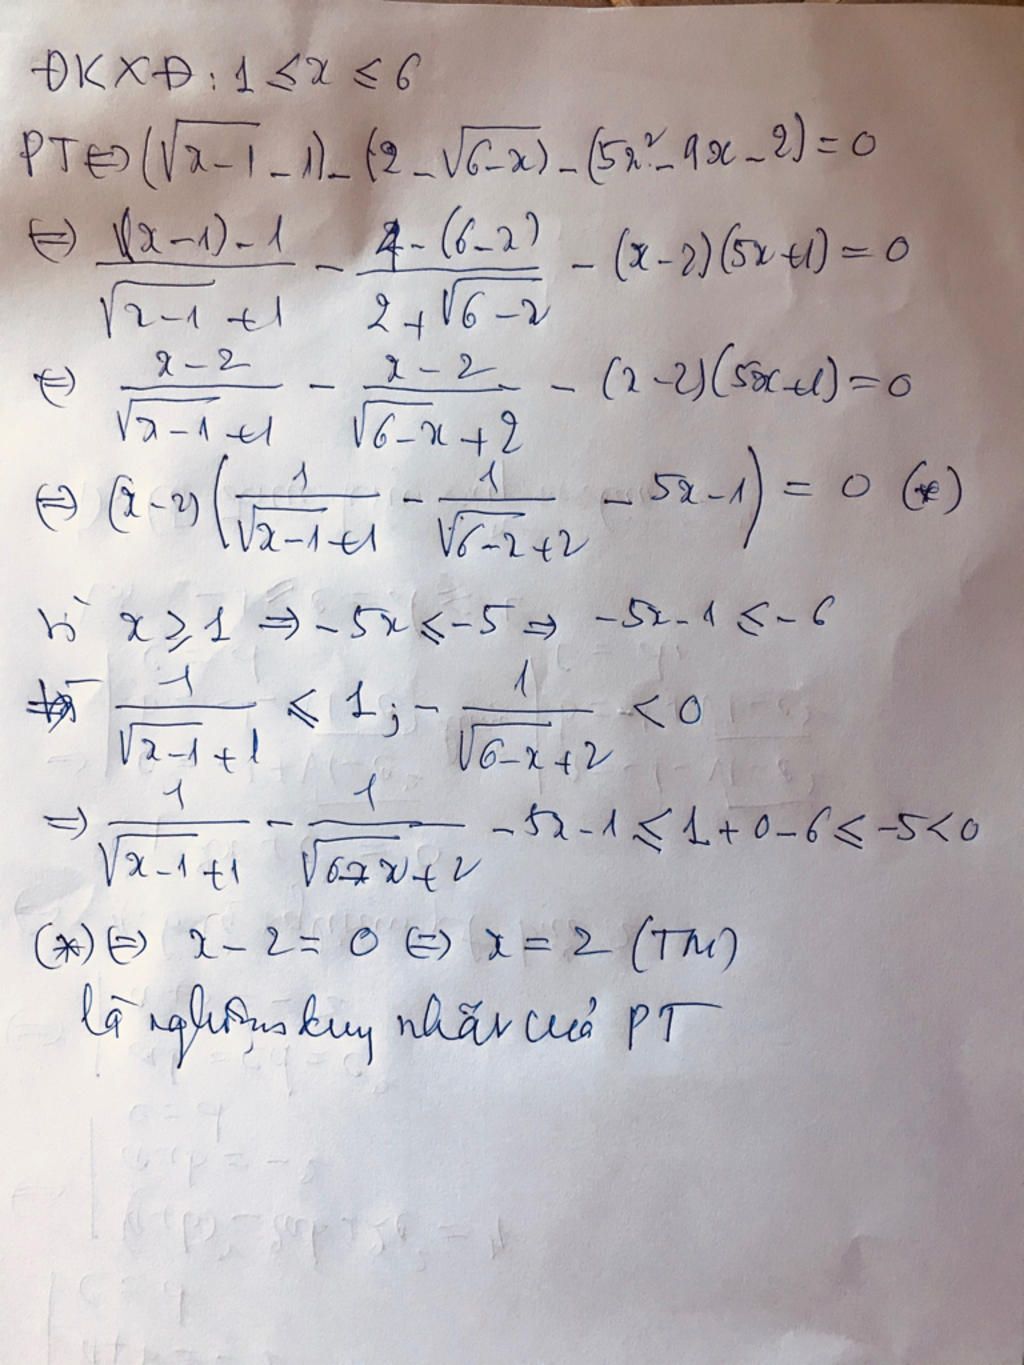 ĐKXĐ: 1 ≤ x ≤ 6
PT ⇔ (√(x-1) - 1) - (2 - √(6-x)) - (5x² - 9x - 2) = 0
⇔ ((x-1) - 1)/(√(x-1) + 1) - (4 - (6-x))/(2 + √(6-x)) - (x-2)(5x+1) = 0
⇔ (x-2)/(√(x-1) + 1) - (x-2)/(√(6-x) + 2) - (x-2)(5x+1) = 0
⇔ (x-2)(1/(√(x-1) + 1) - 1/(√(6-x) + 2) - 5x - 1) = 0 (*)
Vì x ≥ 1 ⇒ -5x ≤ -5 ⇒ -5x - 1 ≤ -6
1/(√(x-1) + 1) ≤ 1; -1/(√(6-x) + 2) < 0
⇒ 1/(√(x-1) + 1) - 1/(√(6-x) + 2) - 5x - 1 ≤ 1 + 0 - 6 ≤ -5 < 0
(*) ⇔ x - 2 = 0 ⇔ x = 2 (TM)
là nghiệm duy nhất của PT